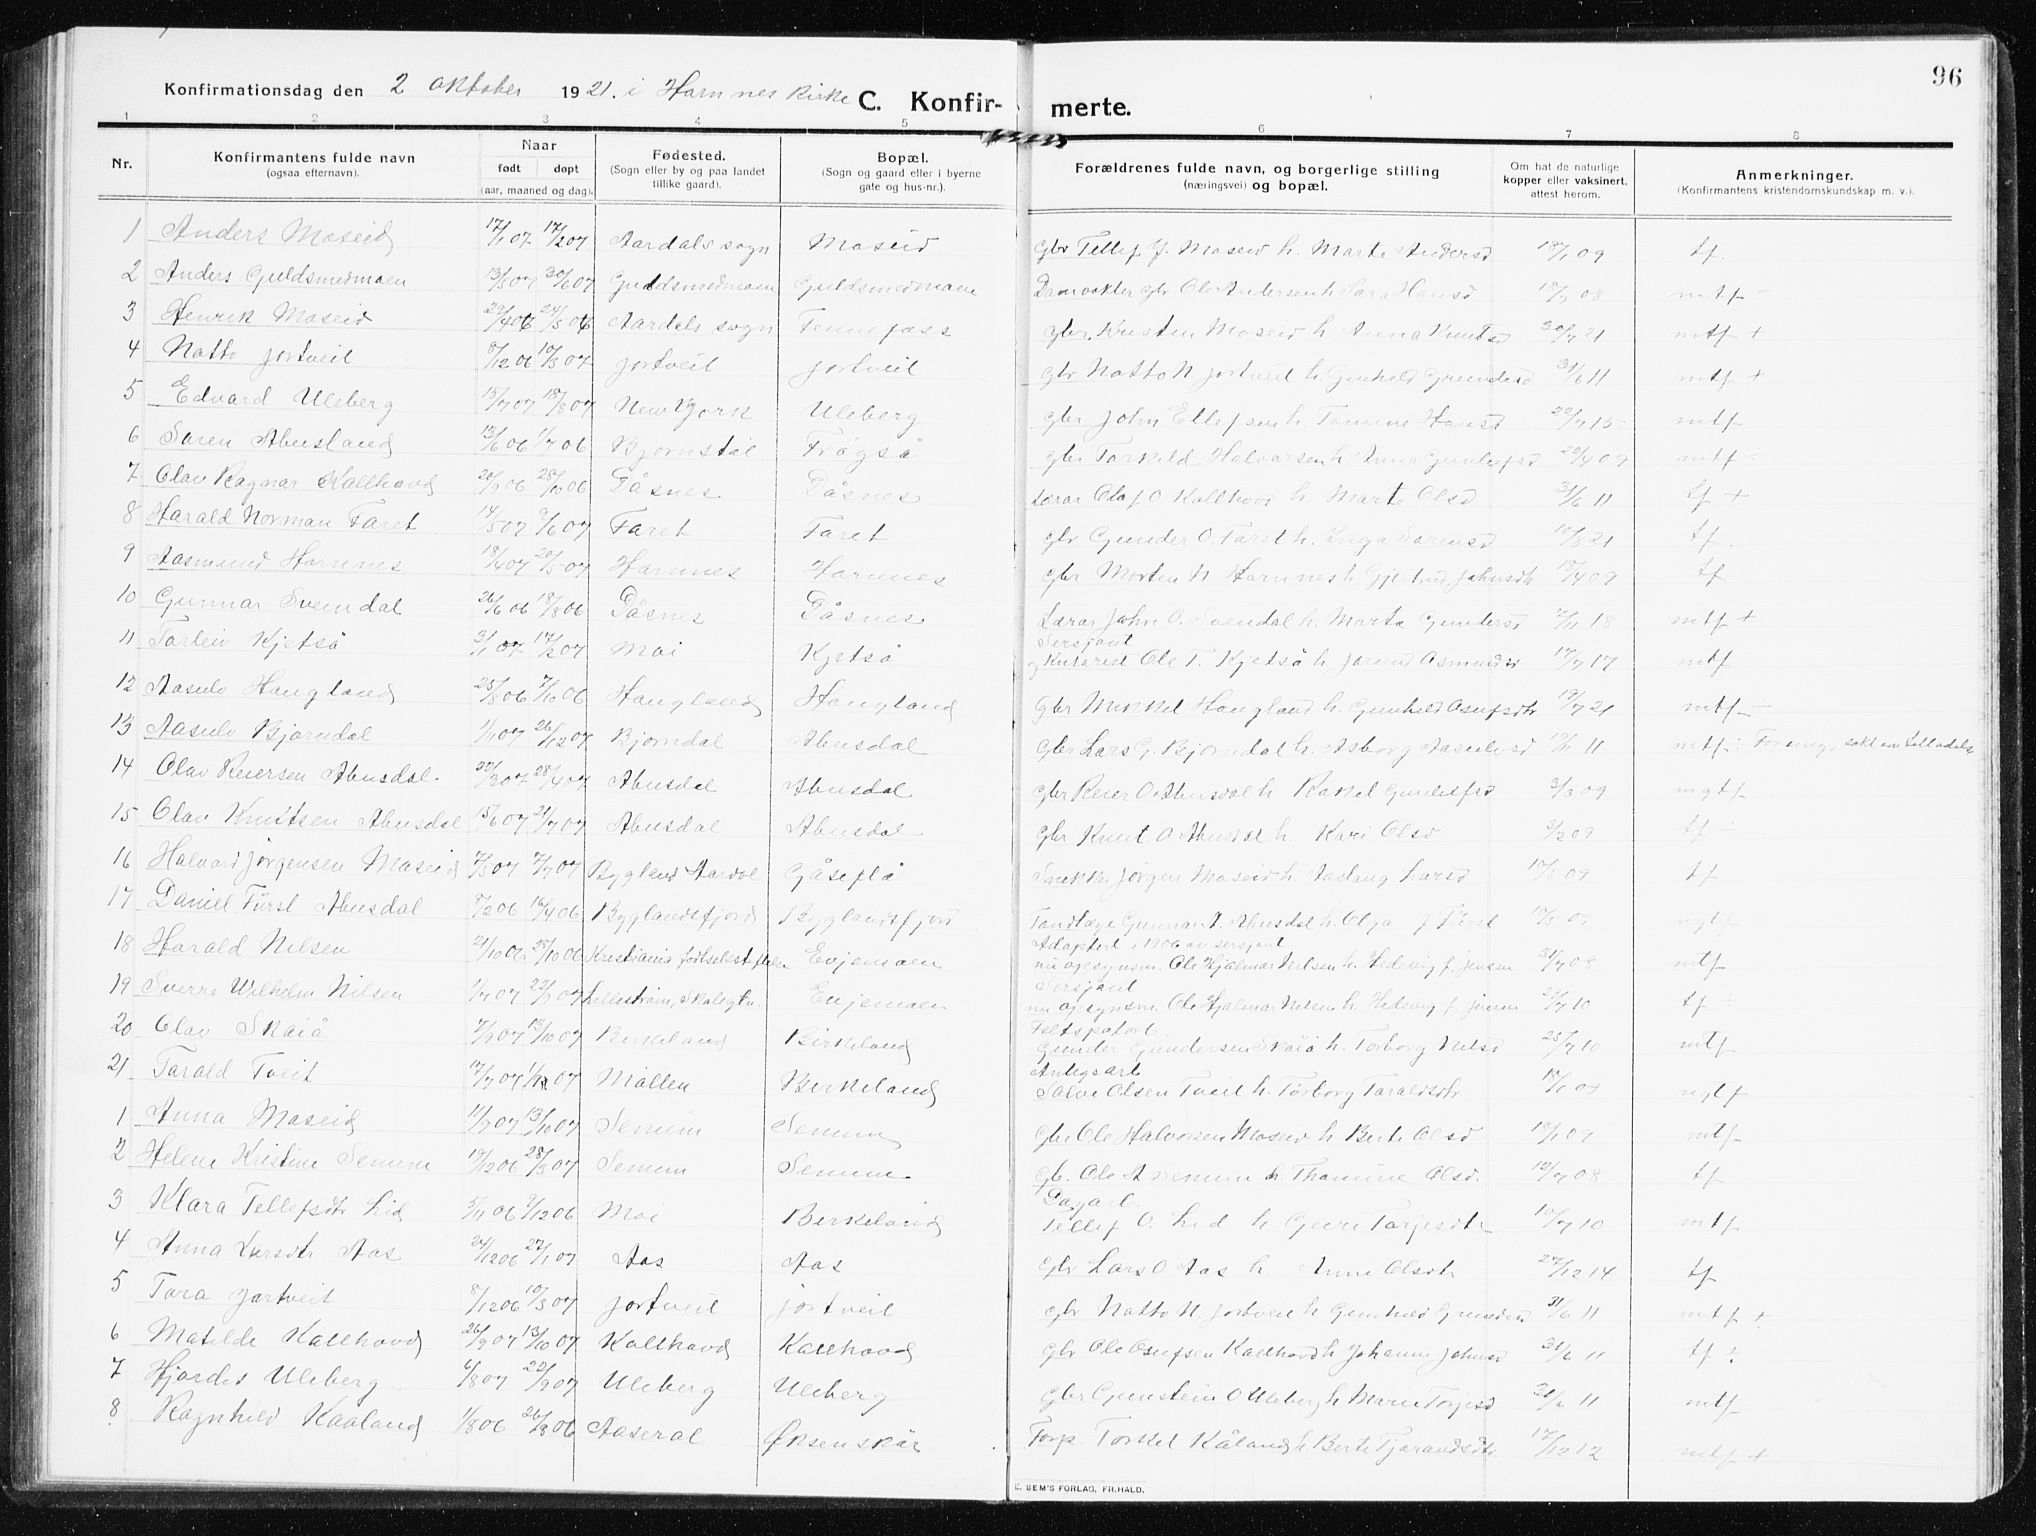 96
Konfirmationsdag den 2 oktober 1921. i Hornnes Kirke C. Konfir- merte.
1 2 3 4 5 6 7 8
Nr. Konfirmantens fulde navn (ogsaa efternavn). Naar født døpt (aar, maaned og dag). Fødested. (Sogn eller by og paa landet tillike gaard). Bopæl. (Sogn og gaard eller i byerne gate og hus-nr.). Forældrenes fulde navn, og borgerlige stilling (næringsvei) og bopæl. Om hat de naturlige kopper eller vaksinert, attest herom. Anmerkninger. (Konfirmantens kristendomskundskap m. v.).
1 Anders Moseid 17/1 07 17/2 07 Aardals sogn Moseid Gbr Tellef J. Moseid h. Marte Andersd 18/1 09 tf.
2 Anders Guldsmedmoen 13/5 07 30/6 07 Guldsmedmoen Guldsmedmoen Damvokter gbr Ole Andersen h Sara Hansd 08 mtf
3 Henrik Moseid 22/4 06 24/5 06 Aardals sogn Fennefoss gbr. Kristen Moseid h. Anna Knutsd 30/7 21 mtf +
4 Natto Jortveit 8/12 06 10/3 07 Jortveit Jortveit Gbr Natto N Jortveit h. Gunhild Gundersd 31/6 11 mtf +
5 Edvard Uleberg 15/7 07 18/8 07 New York Uleberg gbr John Ellefsen h. Tomine Hansd 22/7 15 mtf
6 Søren Abusland 13/6 06 1/7 06 Bjørnstøl Frøyså gbr Torkeld Halvorsen h Anne Gundersd 20/4 09 mtf
7 Olav Ragnar Kallhovd 28/10 06 Dåsnes Dåsnes Lærer Olaf O. Kallhovd h. Marte Olsd 31/6 11 tf +
8 Harald Norman Faret 14/5 07 9/6 07 Faret Faret gbr Gunder O. Faret h. Inga Sørensd 10/8 21 tf.
9 Aasmund Hornnes 18/4 07 20/5 07 Hornnes Hornnes gbr Morten N Hornnes h Gjertrud Johnsdtr 09 tf
10 Gunnar Svendal 26/6 06 18/8 06 Dåsnes Dåsnes Lærer John O. Svendal h. Marte Gundersd 7/11 18 mtf +
11 Torleiv Kjetså 3/1 07 17/2 07 Moi Kjetså Sersjant og Kirkerist Ole T. Kjetså h Jorund Asmundsd 17/7 17 mtf
12 Aasulv Haugland 25/8 06 7/10 06 Haugland Haugland Gbr Mikkel Haugland h. Gunhild Osufsdtr 19/7 21 mtf ÷
13 Aasulv Bjørndal 1/1 07 26/12 07 Bjørndal Abusdal gbr Lars G. Bjørndal h. Asborg Aasulvsd 11 mtf ÷ For ung, søkt om tilladelse
14 Olav Reiersen Abusdal. 28/4 07 Abusdal Abusdal gbr Reier O. Abusdal h Rakel Gundersd 3/3 09 mgtf
15 Olav Knutsen Abusdal 15/6 07 21/7 07 Abusdal Abusdal gbr Knut O Abusdal h. Kari Olsd 3/2 09 tf ÷
16 Halvard Jørgensen Moseid 7/5 07 7/7 07 Bygland Aardal Gåseflå Snekker Jørgen Moseid h Aaslaug Larsd 10/5 09 tf
17 Daniel Fürst Abusdal 8/2 06 16/4 06 Byglandsfjord Byglandsfjord Tandlæge Gunnar A. Abusdal h. Olga f Fürst 10/5 09 mgtf
18 Harald Nilsen 4/10 06 28/10 06 Kristiania fødselsstiftelse Evjemoen Adoptert i 1906 av sersjant nu opsynsm. Ole Hjalmar Nilsen h. Hedevig f. Jensen 31/7 08 mtf
19 Sverre Wilhelm Nilsen 1/7 07 22/9 07 Lillestrøm, Skedsmo Evjemoen Sersjant nu opsynsm. Ole Hjalmar Nilsen h. Hedevig f. Jensen 29/7 10 tf ÷
20 Olav Skaiå 7/9 07 13/10 07 Birkeland Birkeland Feltspatarb. Gunder Gundersen Skaiå h. Torborg Nilsd 25/7 10 mtf
21 Tarald Tveit 17/7 07 07 Mollen Birkeland Anlegsarb Salve Olsen Tveit h. Torborg Taraldsdtr 09 mgtf
1 Anna Moseid 11/9 07 13/10 07 Senum Senum Gbr Ole Halvorsen Moseid h Berte Olsd 18/1 09 mtf
2 Helene Kristine Senum 19/12 06 28/3 07 Senum Senum Gb. Ole A Senum h. Thomine Olsd. 12/7 08 tf
3 Klara Tellefsdtr Lid 5/11 06 9/12 06 Moi Birkeland Dagarb. Tellef O. Lid h Gunvor Torjusdtr 10/7 10 mtf
4 Anna Larsdtr Aas 24/12 06 27/1 07 Aas Aas Gbr Lars O Aas h Anne Olsdtr 27/12 14 tf
5 Tora Jortveit 8/12 06 10/3 07 Jortveit Jortveit gbr Natto N. Jortveit h Gunhild Gundersd 31/6 11 mtf +
6 Matilde Kallhovd 26/9 07 13/10 07 Kallhovd Kallhovd gbr Ole Osufsen Kallhovd h Johanne Johnsd 31/6 11 tf ÷
7 Hjørdis Uleberg 6/8 07 22/9 07 Uleberg Uleberg gbr Gunstein O Uleberg h Maren Torjusd 31/6 11 mtf
8 Ragnhild Kaaland 1/8 06 26/8 06 Aaseral Øksenskår Forp. Torkel Kåland h. Berte Tjorandsdtr 17/12 12 mtf +
E. SEM'S FORLAG, FR.HALD.